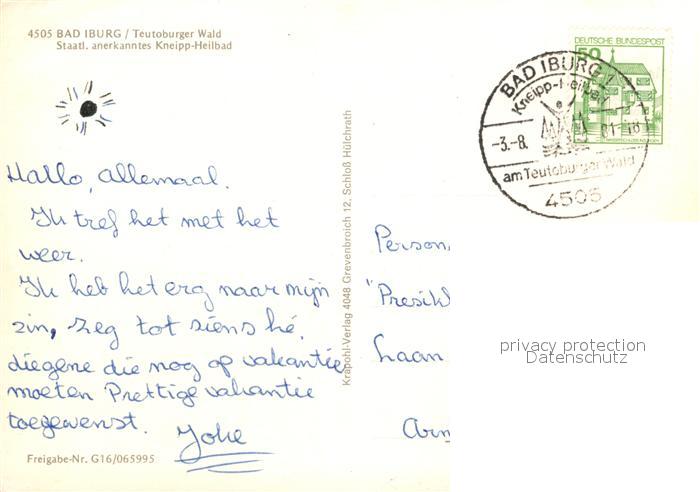 4505 BAD IBURG / Teutoburger Wald
Staatl. anerkanntes Kneipp-Heilbad
Hallo, allemaal.
Ik tref het met het
weer.
Ik heb het erg naar mijn
zin, zeg tot siens hé,
diegene die nog op vakantie
moeten Prettige vakantie
toegewenst.
Joke
Freigabe-Nr. G16/065995
Krapohl-Verlag 4048 Grevenbroich 12, Schloß Hülchrath
DEUTSCHE BUNDESPOST
50
BAD IBURG 1
-3.-8.
-18
am Teutoburger Wald
4505
Person
"Presik
Laan
privacy protection
Datenschutz